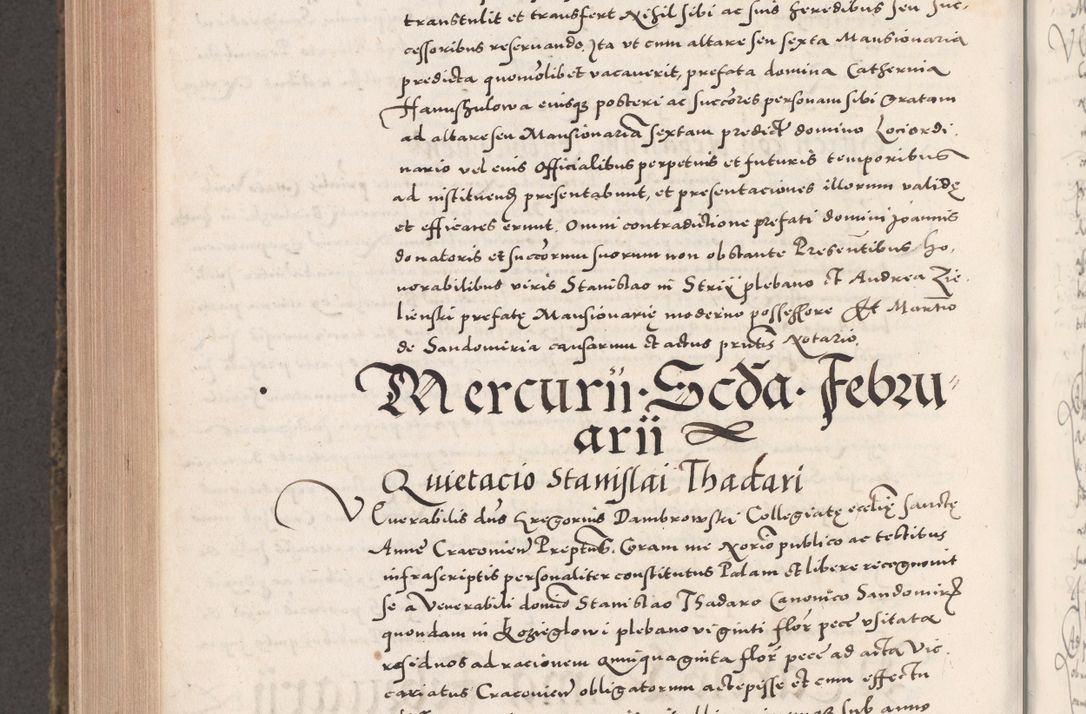 transtulit et transfert Nihil sibi ac suis heredibus seu suc-
cessoribus reservando. Ita ut cum altare seu sexta Mansionaria
predicta quomolibet vacaverit, prefata domina Catherina
Hanuszulowa eiusq posteri ac succores personam sibi Gratam
ad altare seu Mansionaria Sextam predict domino Lociordi.
nario vel eius Officialibus perpetuis et futuris temporibus
ad instituend presentabunt, et presentaciones illorum valide
et efficaces erunt. Omni contradictione prefati domini Joannis
donatoris et succorum suorum non obstante Presentibus Ho.
norabilibus viris Stanislao in Strij plebano et Andrea Zie.
lienski prefate Mansionarie moderno possessore Et Martio
de Sandomiria causarum et actus pntis Notario.
Mercurii. Scda. Febru
arii
Quietacio Stanislai Thadari
Venerabilis dns Gregorius Dambrowski Collegiate ecclie sancte
Anne Cracovien Prepositus. Coram me Norio publico ac testibus
infrascriptis personaliter constitutus Palam et libere recognovit
se a Venerabili domino Stanislao Thadaro Canonico Sandomir
quondam in Kozieglowi plebano viginti flor pece usitata
residuos ad racionem quinquaginta flor pece ad acta Vic
cariatus Cracovien obligatorum accepisse et cum effectu
sub anno